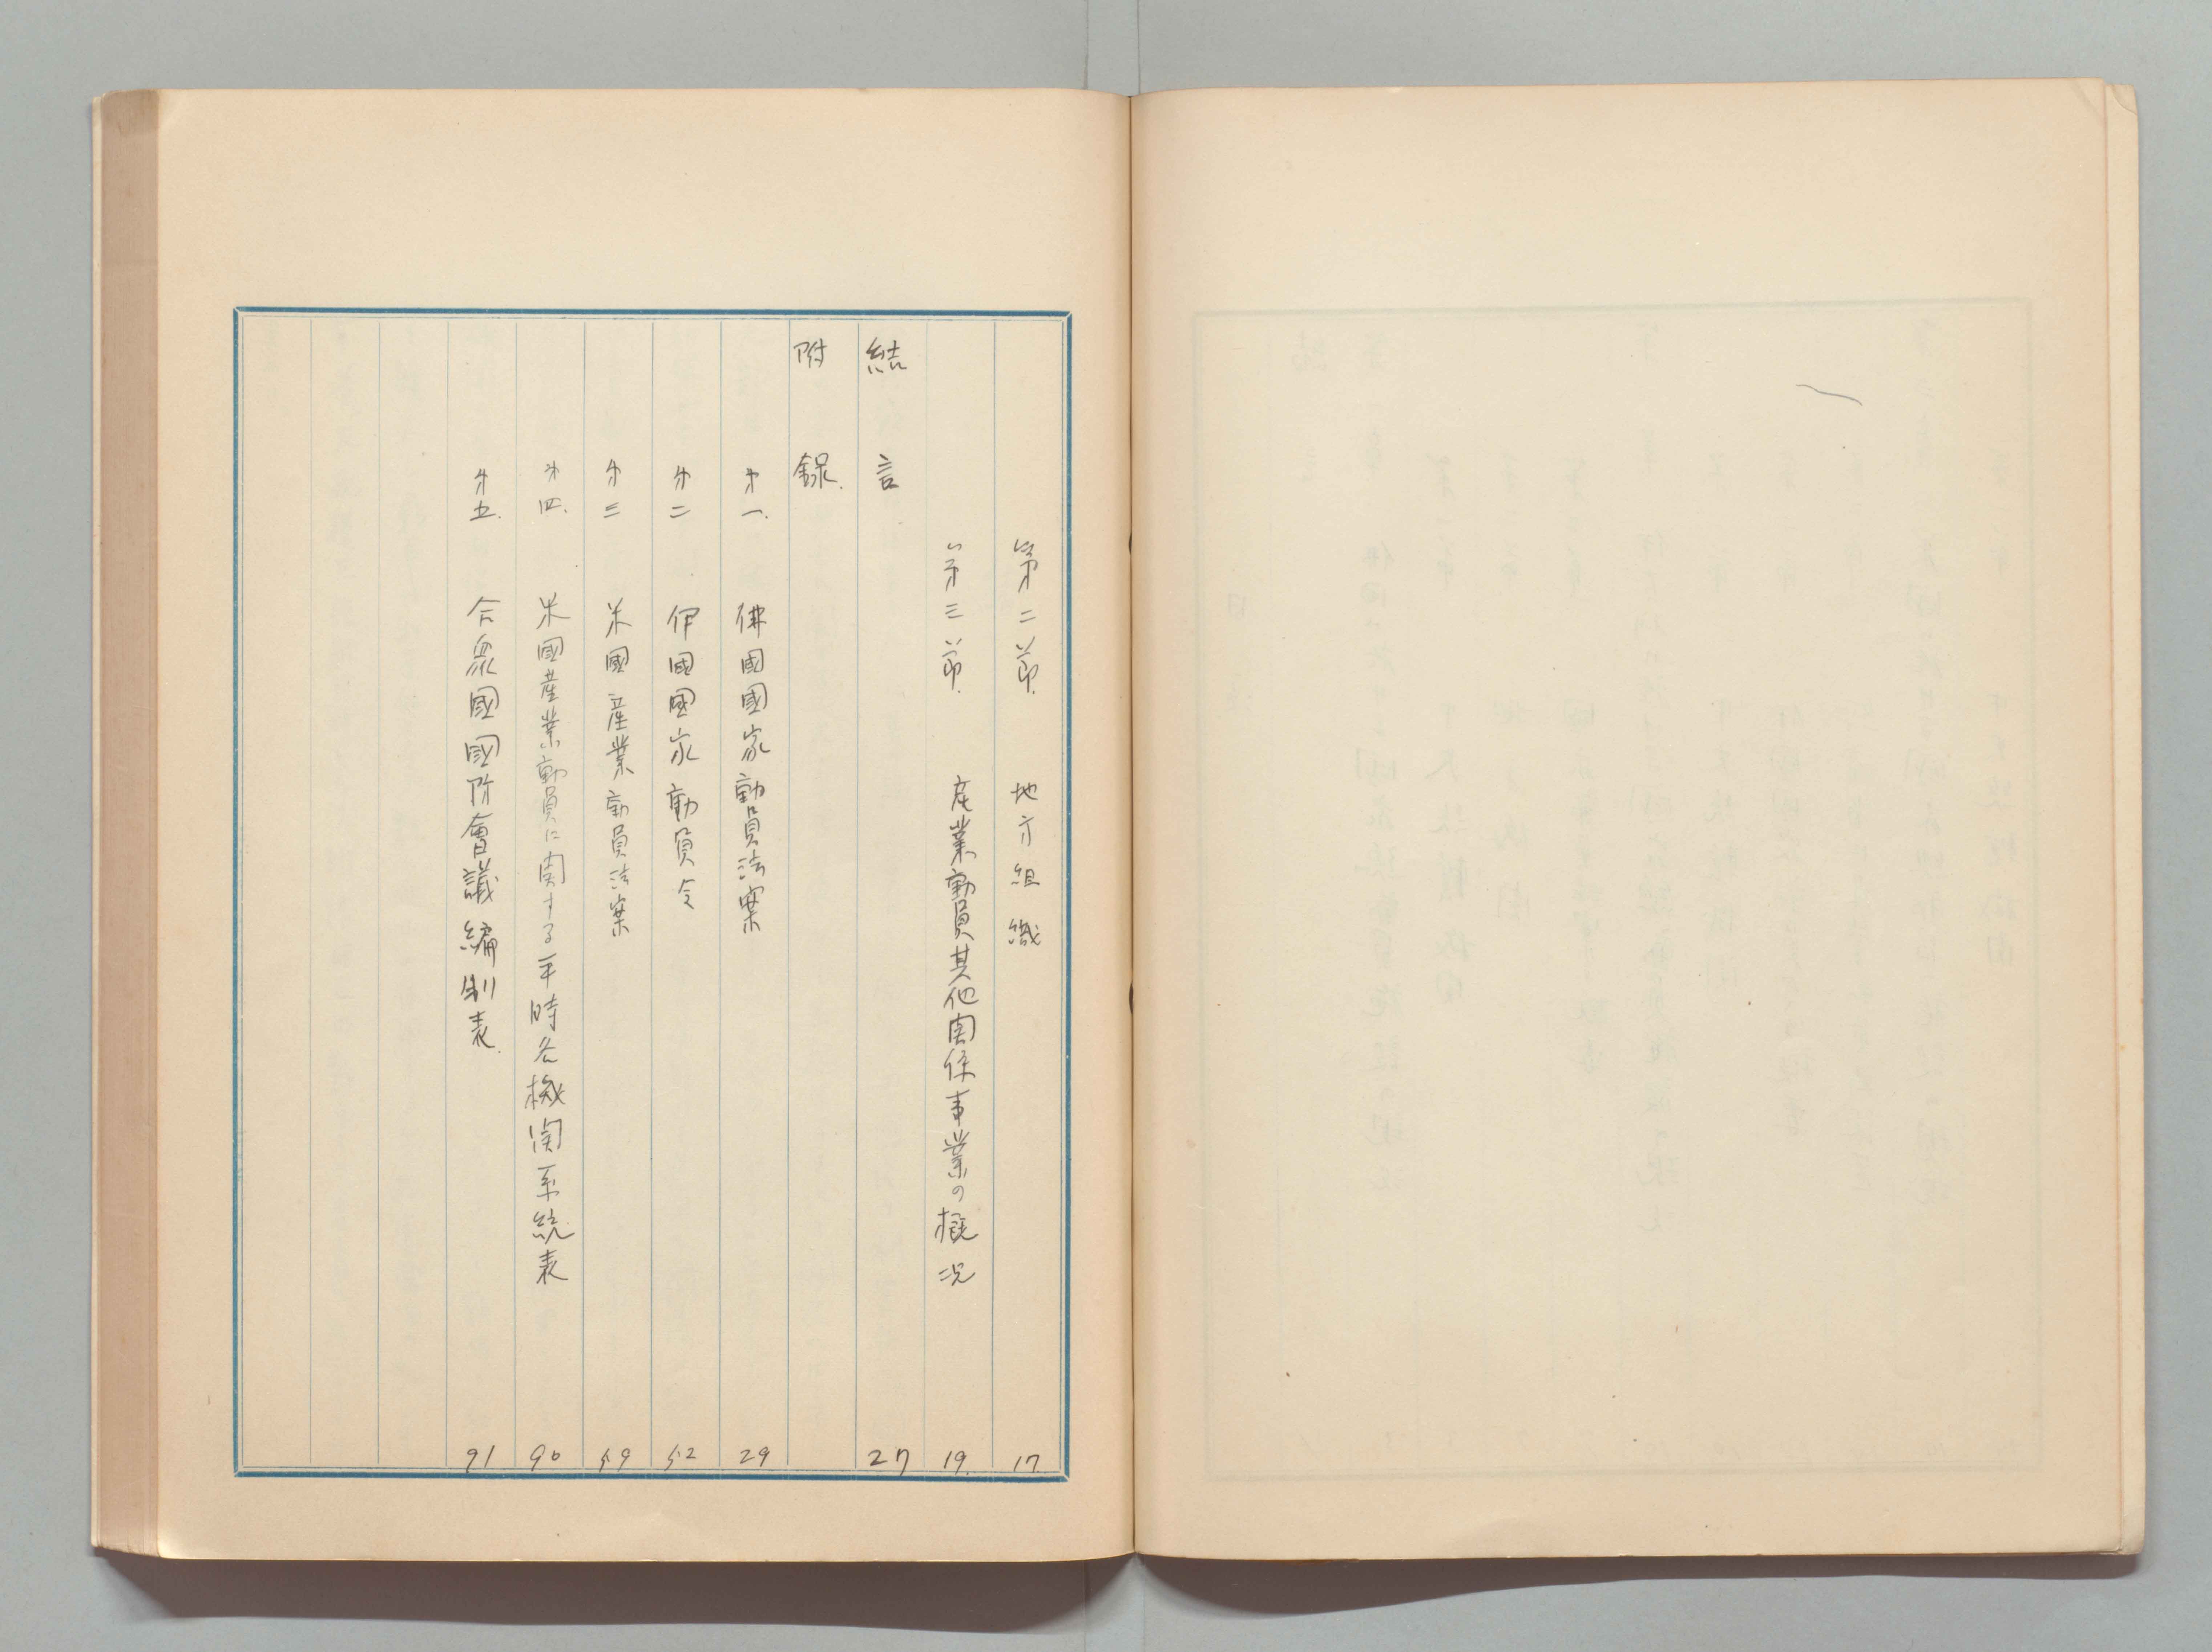 第二節 地方組織 17
第三節 産業動員其他関係事業の概况 19
結言 27
附録
才一 佛國國家動員法案 29
才二 伊國國家動員令 52
才三 米國産業動員法案 59
才四 米國産業動員に関する平時各機関系統表 90
才五 合衆國國防會議編制表 91